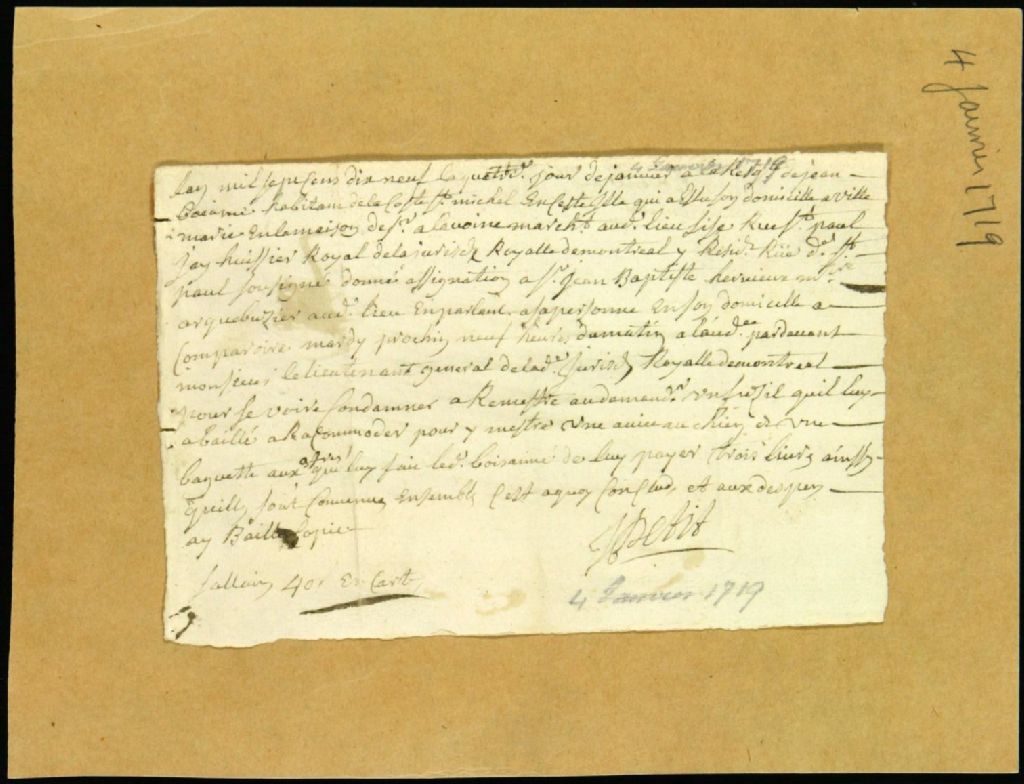 Lan mil sept Cens dix neuf Le quatre.e jour de janvier a la Req.te de jean
habitant de la Coste St. michel En Ceste Isle qui a Elu son domicille a ville
marie En la maison de Sr. alavoine march.t aud. lieu sise Rue St. paul
Jay huissier Royal de la jurisd.n Royalle de montreal y Resid.t Rüe d. St.
paul sousigné donné assignation a Sr. Jean Baptiste Nerrieux m.tre
arquebuzier aud. lieu En parlant a sa personne En son domicille a
Comparoire mardy prochin neuf heures du matin a laud.ce pardevant
monsieur le lieutenant general de lad. Jurisd.n Royalle de montreal
pour se voire Condamner a Remestre au demand.r un fuzil quil luy
a baillé a Racommoder pour y mestre une au Chien et une
baguette aux offres que luy fait led. de luy payer trois livres ainsy
quills sont Convenus Ensemble Cest a quoy Conclud et aux despens
ay Baillé Copie
JPetit
Sallaire 40s En Carte
4 Janvier 1719
4 Janvier 1719
4 Janvier 1719